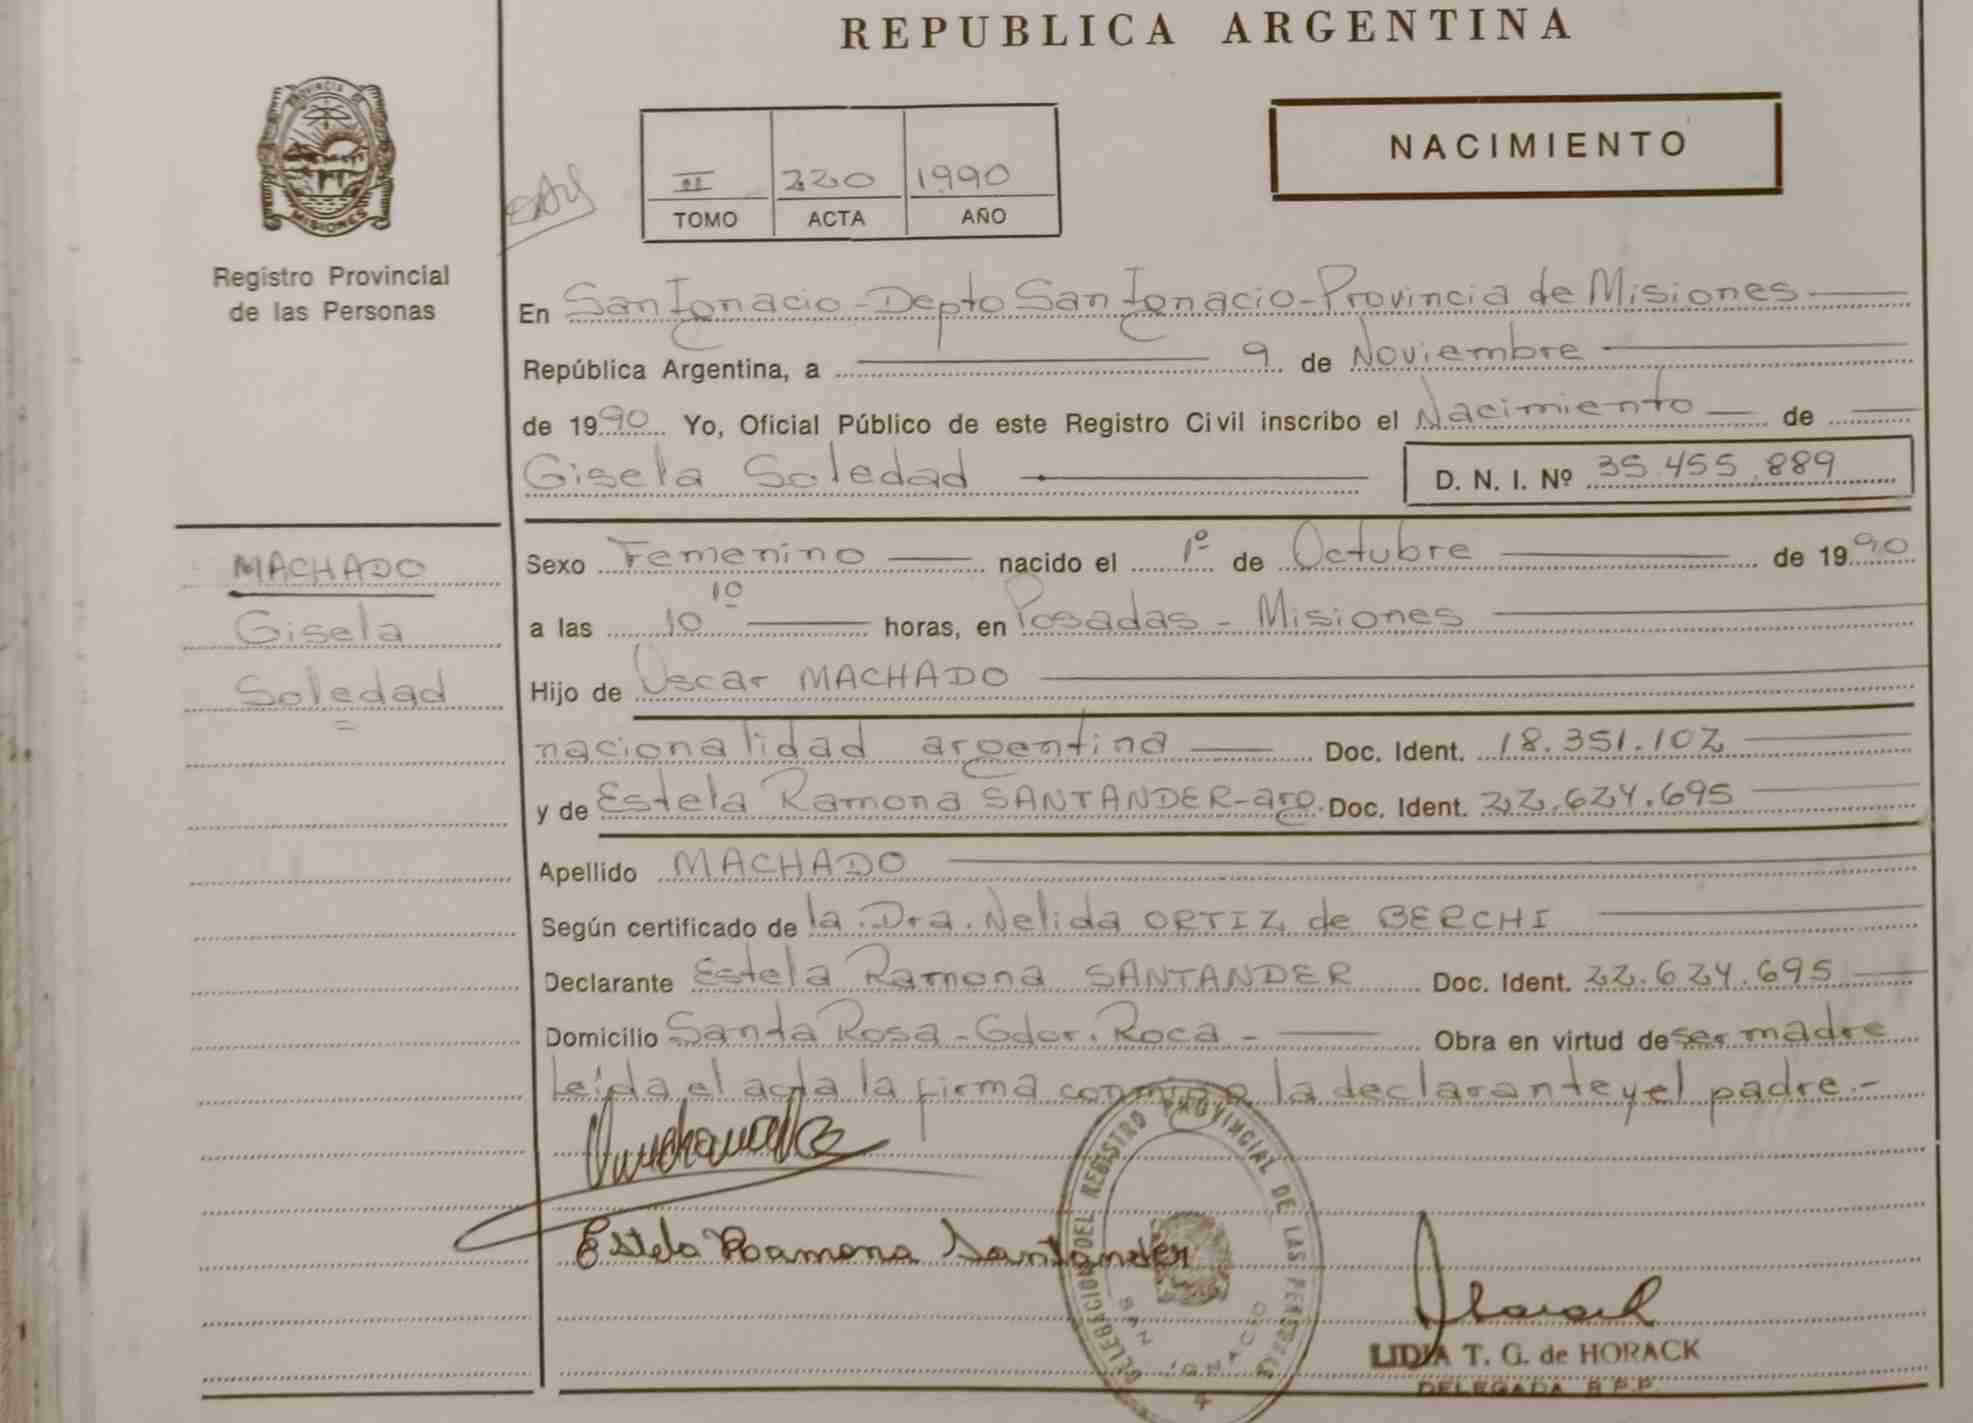 REPUBLICA ARGENTINA
PROVINCIA DE
MISIONES
Registro Provincial
de las Personas
II 220 1990
TOMO ACTA AÑO
NACIMIENTO
En San Ignacio - Depto San Ignacio - Provincia de Misiones
República Argentina, a 9 de Noviembre
de 1990 Yo, Oficial Público de este Registro Civil inscribo el Nacimiento de
Gisela Soledad D. N. I. Nº 35.455.889
MACHADO
Gisela
Soledad
Sexo Femenino nacido el 1º de Octubre de 1990
a las 10 10 horas, en Posadas - Misiones
Hijo de Oscar MACHADO
nacionalidad argentina Doc. Ident. 18.351.102
y de Estela Ramona SANTANDER-arg. Doc. Ident. 22.624.695
Apellido MACHADO
Según certificado de la Dra. Nelida ORTIZ de BERCHI
Declarante Estela Ramona SANTANDER Doc. Ident. 22.624.695
Domicilio Santa Rosa - Gdor. Roca - Obra en virtud de ser madre
Leída el acta la firma conmigo la declarante y el padre.-
Estela Ramona Santander
DELEGACION DEL REGISTRO PROVINCIAL DE LAS PERSONAS
SAN IGNACIO
LIDIA T. G. de HORACK
DELEGADA R.P.P.